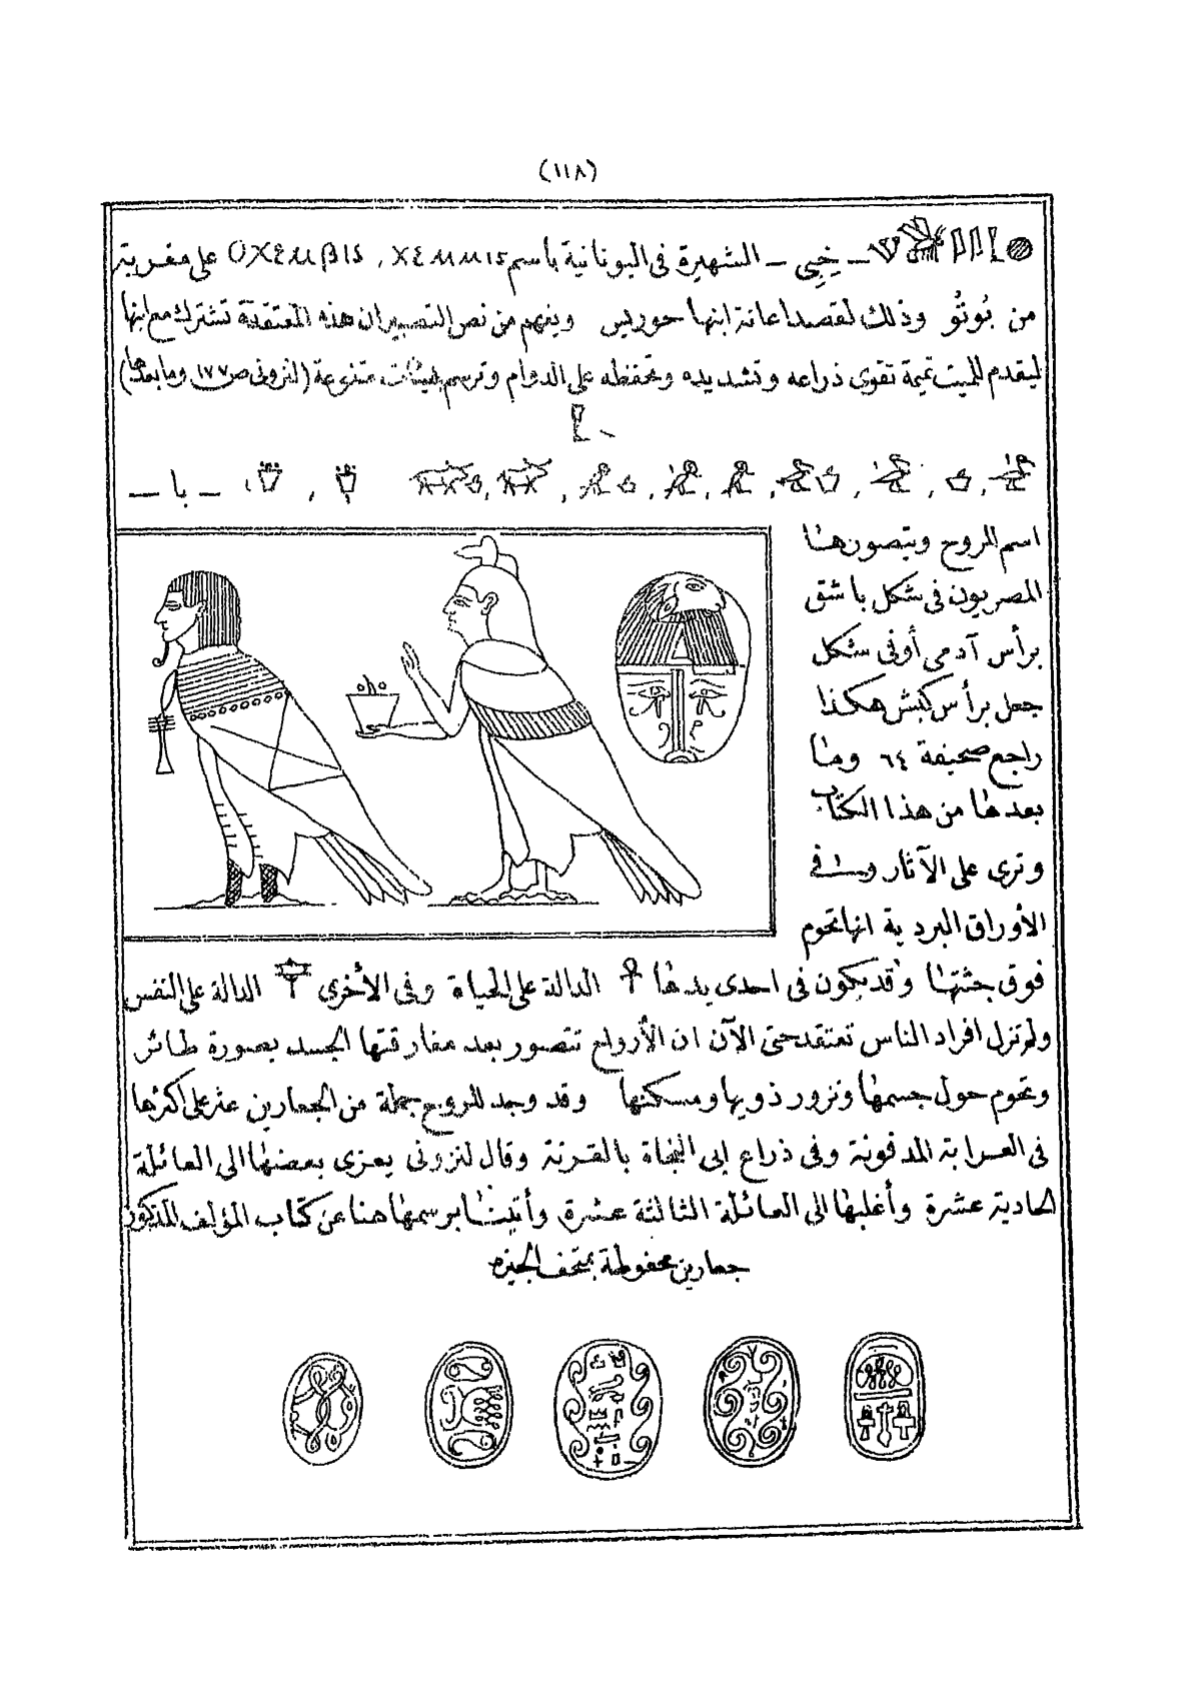 (١١٨)
ـ خِبِى ـ الشهيرة فى اليونانية بأسم ΧΕΜΜΙS , ΟΧΕΜΒΙS على مقربة
من بُوتُو وذلك لقصد اعانة ابنها حوريس ويفهم من نص التصبير ان هذه المعتقدة تشترك مع ابنها
ليقدم للميت تميمة تقوى ذراعه وتشديده وتحفظه على الدوام وترسم بهيئات متنوعة (لنزونى ص ١٧٧ وما بعدها)
ـ با ـ
اسم للروح ويتصورها
المصريون فى شكل باشق
برأس آدمى أو فى شكل
جعل برأس كبش هكذا
راجع صحيفة ٦٤ وما
بعدها من هذا الكتاب
وترى على الآثار وفى
الأوراق البردية انها تحوم
فوق جثتها وقد يكون فى احدى يدها ☥ الدالة على الحياة وفى الأخرى الدالة على النفس
ولم تزل افراد الناس تعتقد حتى الآن ان الأرواح تتصور بعد مفارقتها الجسد بصورة طائر
وتحوم حول جسمها وتزور ذويها ومسكنها وقد وجد للروح جملة من الجعارين عثر على أكثرها
فى العرابة المدفونة وفى ذراع ابى النجاة بالقرنة وقال لنزونى يعزى بعضها الى العائلة
الحادية عشرة وأغلبها الى العائلة الثالثة عشرة وأتينا برسمها هنا عن كتاب المؤلف المذكور
جعارين محفوظة بمتحف الجيزه